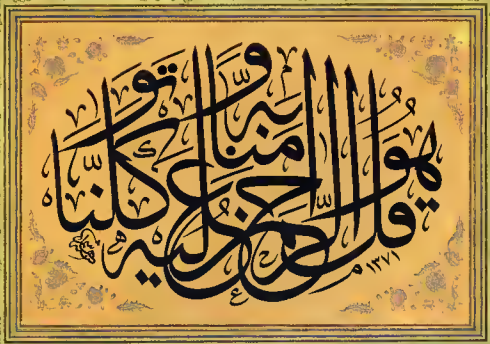 قُل هُوَ الرَّحمٰن اٰمَنّا بِهِ وَعَلَيهِ تَوَكَّلنا
١٣٧١